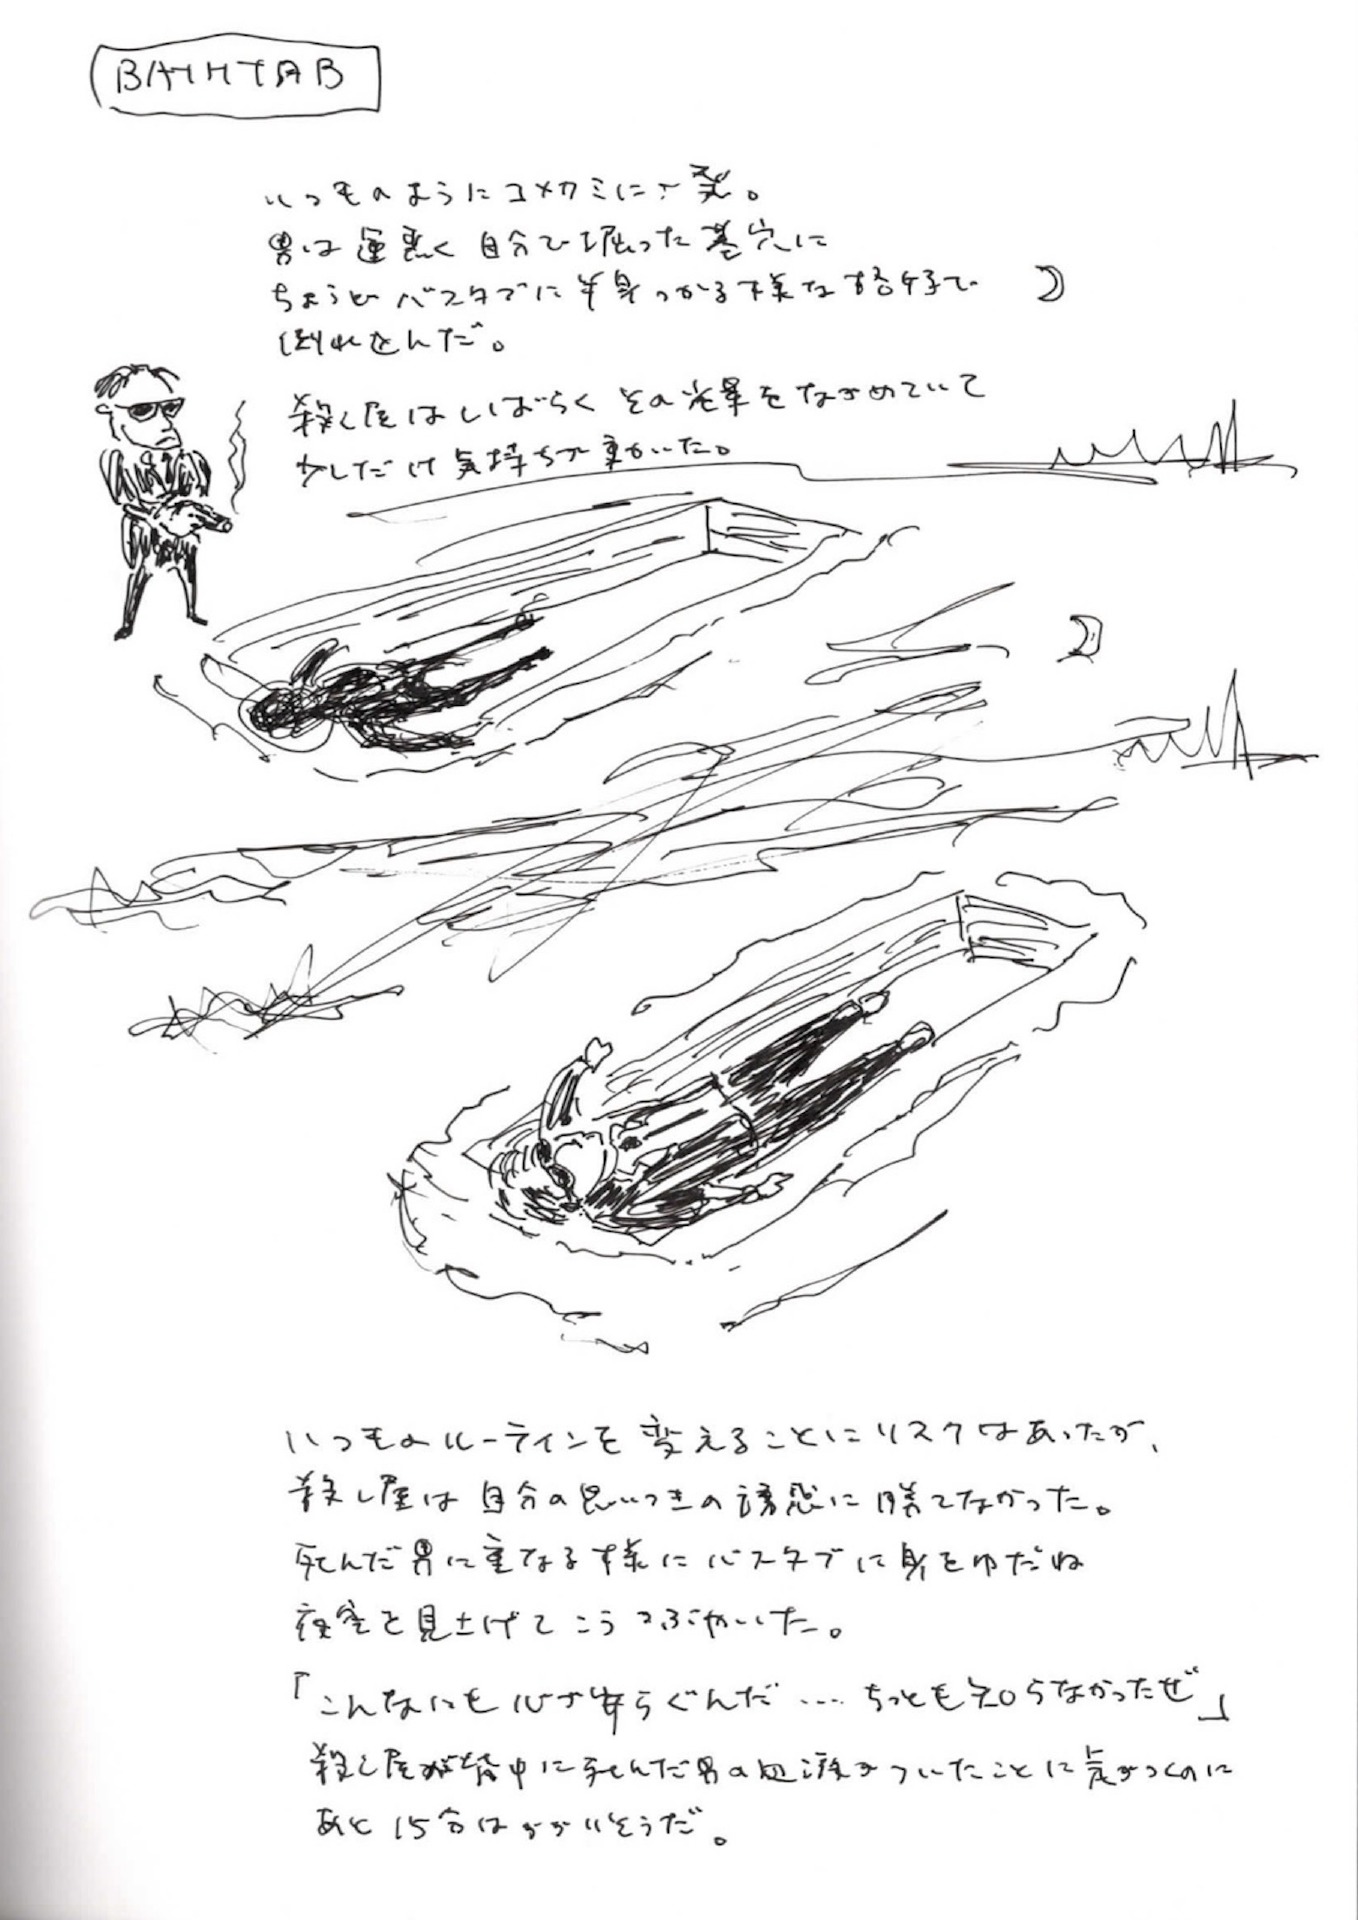 BATHTAB
いつものようにコメカミに一発。
男は運悪く自分で堀った墓穴に
ちょうどバスタブに半身つかる様な格好で
倒れこんだ。
殺し屋はしばらくその光景をながめていて
少しだけ気持ちが動いた。
いつものルーティンを変えることにリスクはあったが、
殺し屋は自分の思いつきの誘惑に勝てなかった。
死んだ男に重なる様にバスタブに身をゆだね
夜空を見上げてこうつぶやいた。
「こんなにも心が安らぐんだ……ちっとも知らなかったぜ」
殺し屋が背中に死んだ男の血液がついたことに気がつくのに
あと15分はかかりそうだ。